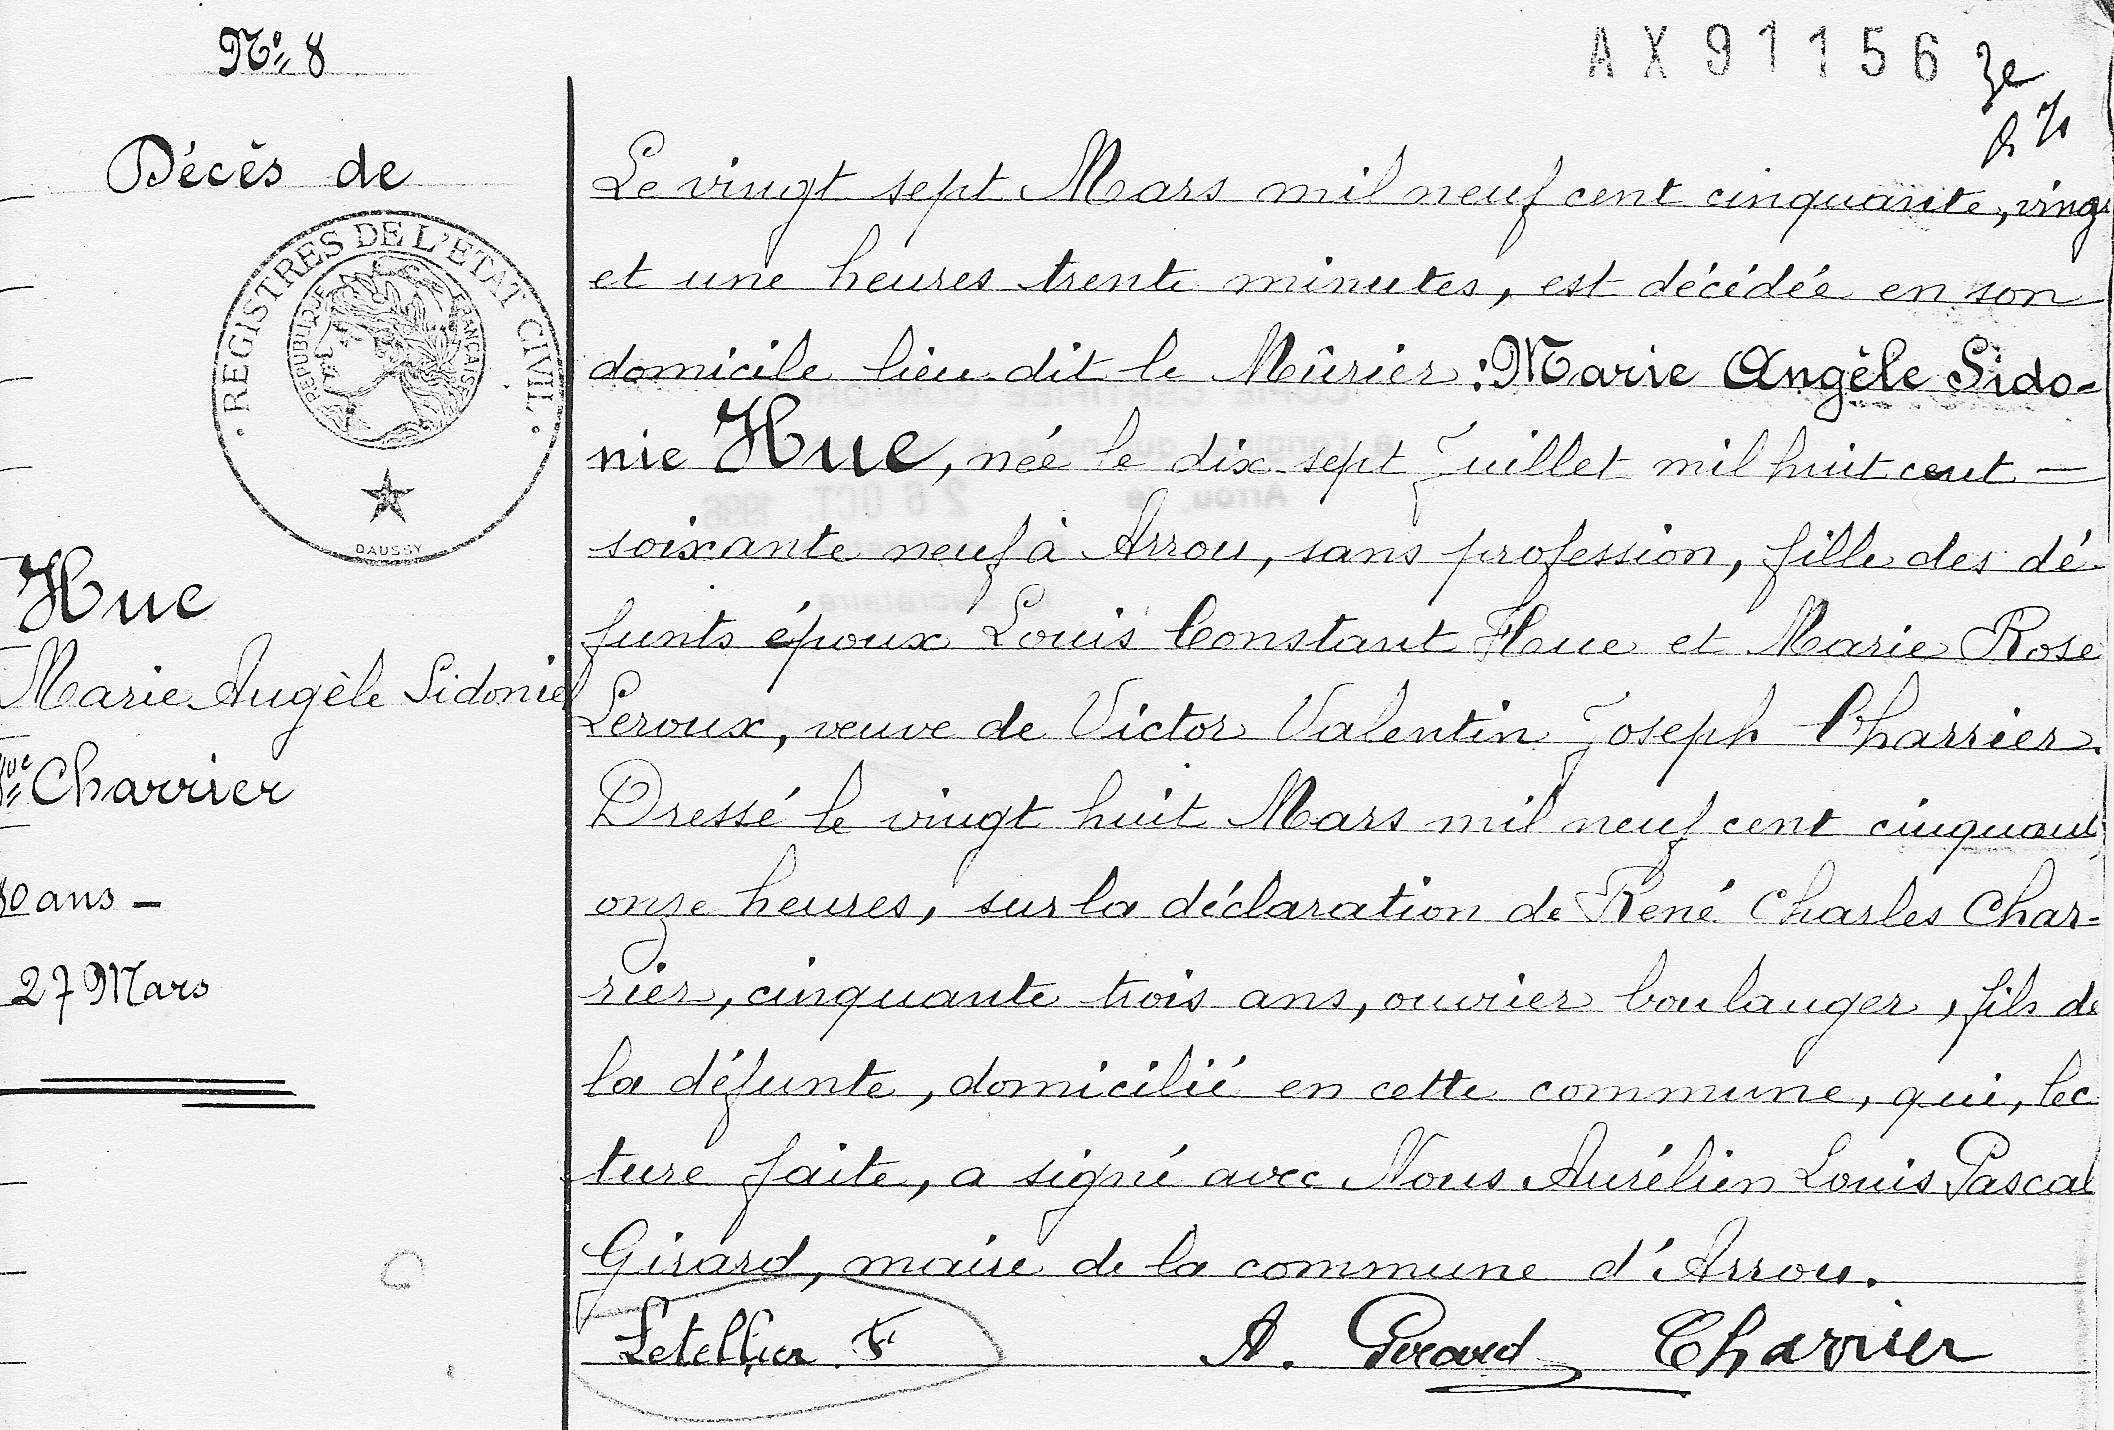 N° 8
AX 91156
Décès de
REGISTRES DE L'ETAT CIVIL
REPUBLIQUE FRANÇAISE
DAUSSY
Hue
Marie Angèle Sidonie
Vve Charrier
80 ans –
27 Mars
Le vingt sept Mars mil neuf cent cinquante, vingt
et une heures trente minutes, est décédée en son
domicile lieu dit le Mûrier : Marie Angèle Sido-
nie Hue, née le dix sept Juillet mil huit cent –
soixante neuf à Arrou, sans profession, fille des dé-
funts époux Louis Constant Hue et Marie Rose
Leroux, veuve de Victor Valentin Joseph Charrier.
Dressé le vingt huit Mars mil neuf cent cinquante
onze heures, sur la déclaration de René Charles Char-
rier, cinquante trois ans, ouvrier boulanger, fils de
la défunte, domicilié en cette commune, qui, lec
ture faite, a signé avec Nous Aurélien Louis Pascal
Girard, maire de la commune d'Arrou.
Letellier F A. Girard Charrier